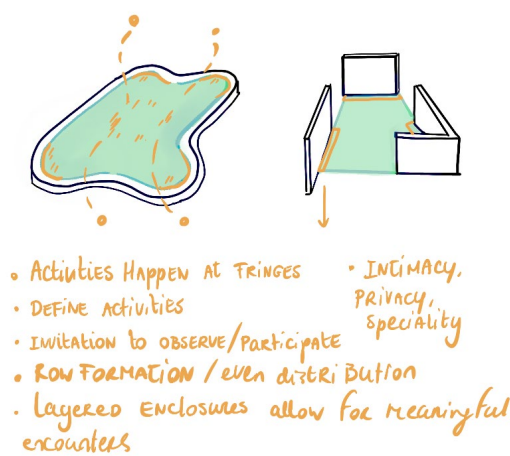 • Activities Happen at Fringes
• Define Activities
• Invitation to observe/Participate
• Row Formation / even distribution
• Layered Enclosures allow for meaningful
encounters
• Intimacy,
Privacy,
Speciality